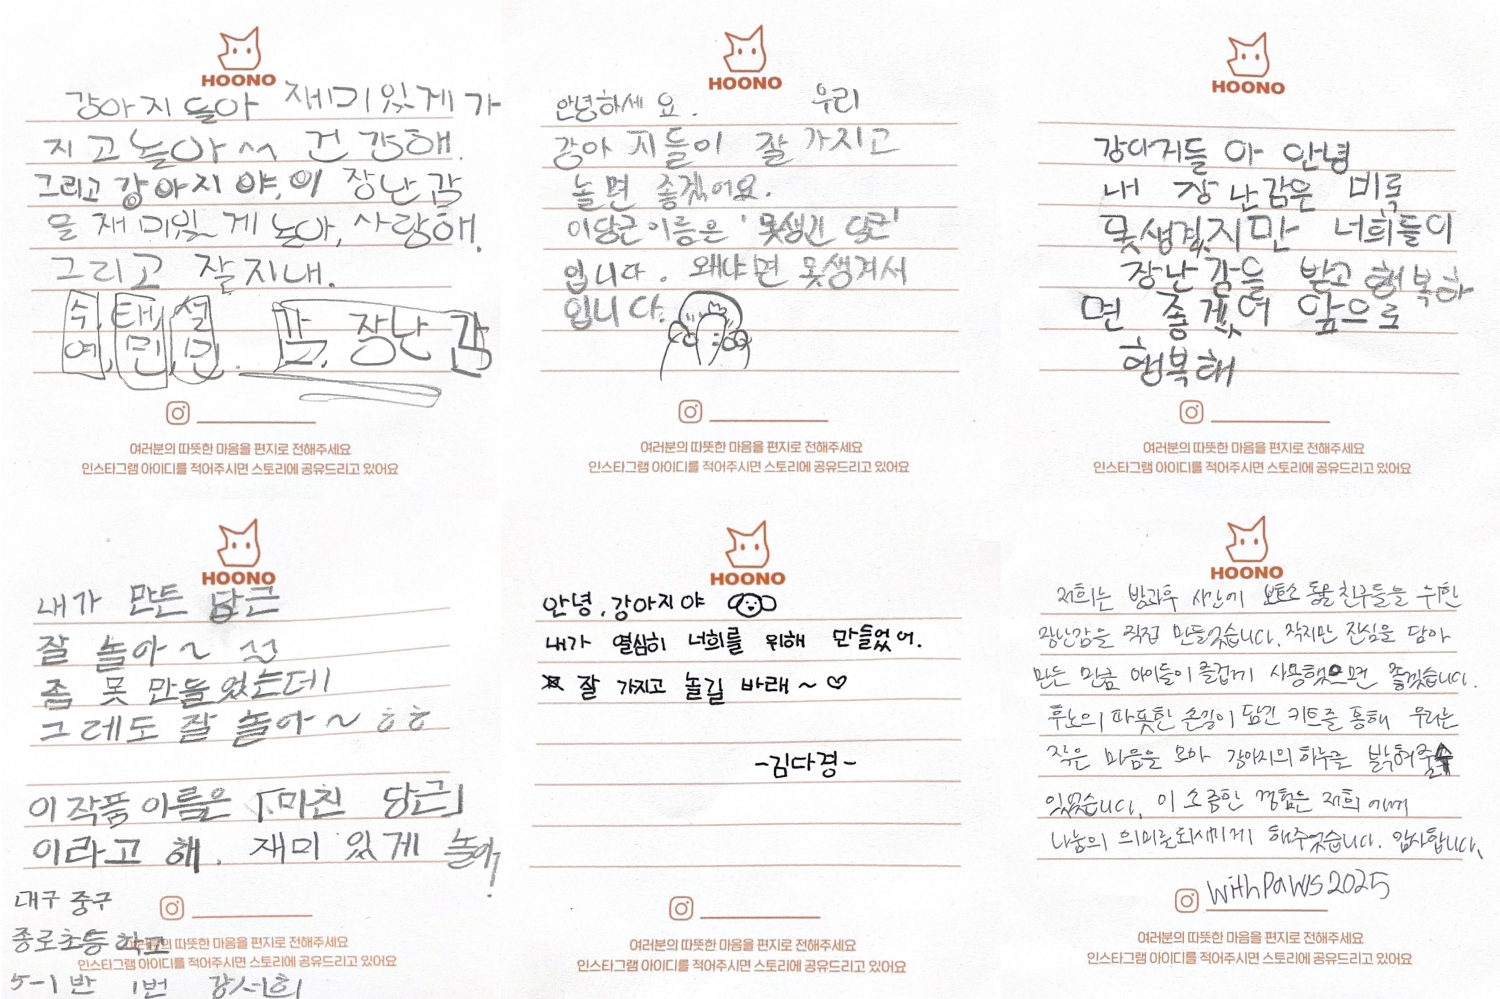 HOONO
강아지들아 재미있게 가
지고 놀아~ 건강해.
그리고 강아지야, 이 장난감
을 재미있게 놀아, 사랑해.
그리고 잘지내.
수연, 태민, 설민. 장난감
여러분의 따뜻한 마음을 편지로 전해주세요
인스타그램 아이디를 적어주시면 스토리에 공유드리고 있어요
HOONO
안녕하세요. 우리
강아지들이 잘 가지고
놀면 좋겠어요.
이당근이름은 '못생긴 당근'
입니다. 왜냐면 못생겨서
입니다.
여러분의 따뜻한 마음을 편지로 전해주세요
인스타그램 아이디를 적어주시면 스토리에 공유드리고 있어요
HOONO
강아지들아 안녕
내 장난감은 비록
못생겼지만 너희들이
장난감을 받고 행복하
면 좋겠어 앞으로
행복해
여러분의 따뜻한 마음을 편지로 전해주세요
인스타그램 아이디를 적어주시면 스토리에 공유드리고 있어요
HOONO
내가 만든 당근
잘 놀아~
좀 못 만들었는데
그레도 잘 놀아~ ㅎㅎ
이 작품 이름은 「미친 당근」
이라고 해. 재미있게 놀아!
대구 중구
종로초등학교
5-1반 1번 강서희
여러분의 따뜻한 마음을 편지로 전해주세요
인스타그램 아이디를 적어주시면 스토리에 공유드리고 있어요
HOONO
안녕, 강아지야
내가 열심히 너희를 위해 만들었어.
잘 가지고 놀길 바래~♡
-김다경-
여러분의 따뜻한 마음을 편지로 전해주세요
인스타그램 아이디를 적어주시면 스토리에 공유드리고 있어요
HOONO
저희는 방과후 시간에 보호소 동물 친구들을 위한
장난감을 직접 만들었습니다. 작지만 진심을 담아
만든 만큼 아이들이 즐겁게 사용했으면 좋겠습니다.
후노의 따뜻한 손길이 담긴 키트를 통해 우리는
작은 마음을 모아 강아지의 하루를 밝혀줄 수
있었습니다. 이 소중한 경험은 저희에게
나눔의 의미를 되새기게 해주었습니다. 감사합니다.
withpaws2025
여러분의 따뜻한 마음을 편지로 전해주세요
인스타그램 아이디를 적어주시면 스토리에 공유드리고 있어요